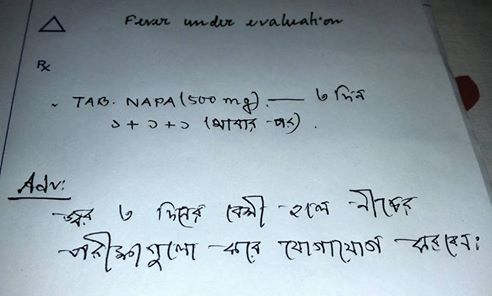 △ Fever under evaluation
Rx
- TAB. NAPA (500 mg). — ৩ দিন
১ + ১ + ১ (খাবার পর).
Adv:
- জ্বর ৩ দিনের বেশী হলে নীচের
পরীক্ষাগুলো করে যোগাযোগ করবেন।